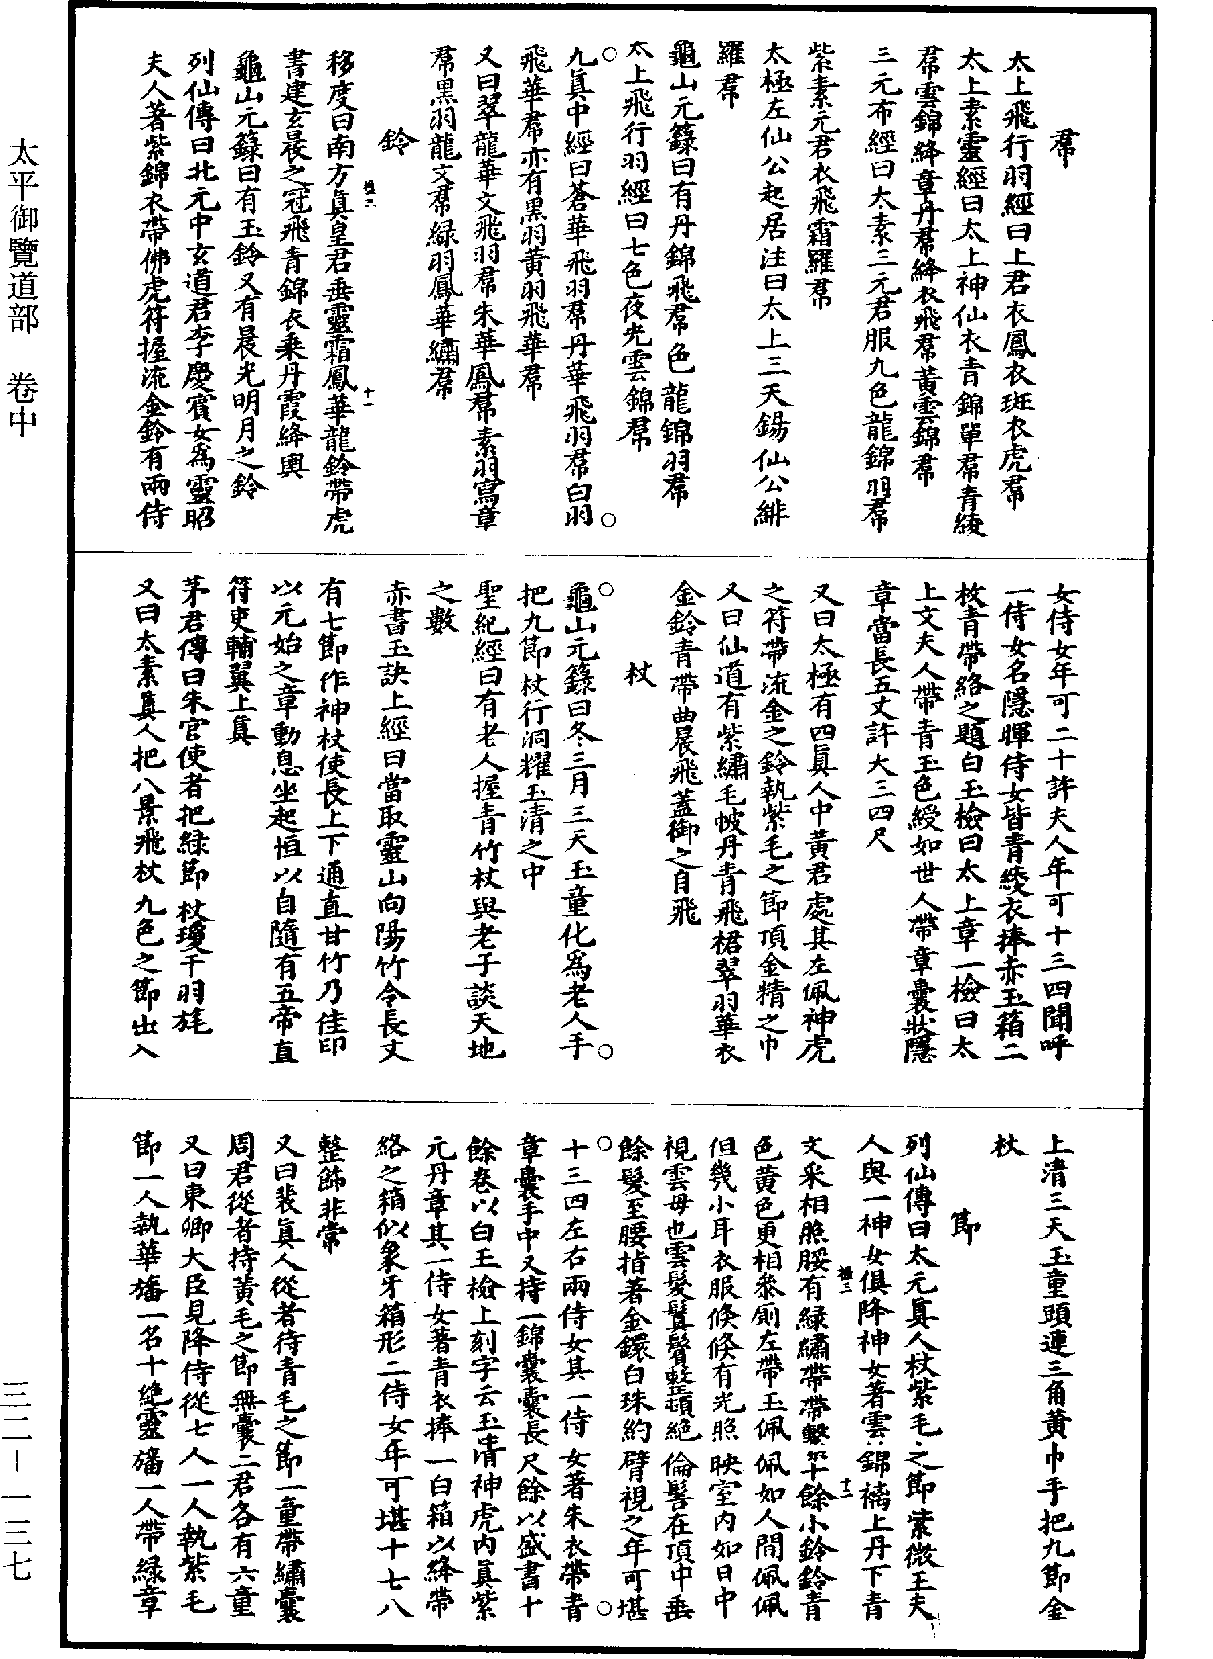 太平御覽道部　卷中
三二－一三七
帬
太上飛行羽經曰上君衣鳳衣斑衣虎帬
太上素靈經曰太上神仙衣青錦單帬青綾
帬雲錦絳章丹帬絳衣飛帬黃雲錦帬
三元布經曰太素三元君服九色龍錦羽帬
紫素元君衣飛霜羅帬
太極左仙公起居注曰太上三天錫仙公緋
羅帬
龜山元籙曰有丹錦飛帬色龍錦羽帬
太上飛行羽經曰七色夜光雲錦帬
九真中經曰蒼華飛羽帬丹華飛羽帬白羽
飛華帬亦有黑羽黃羽飛華帬
又曰翠龍華文飛羽帬朱華鳳帬素羽寫章
帬黑羽龍文帬緑羽鳳華繡帬
鈴
移度曰南方真皇君垂靈霜鳳華龍鈴帶虎
書建玄晨之冠飛青錦衣乗丹霞絳輿
龜山元籙曰有玉鈴又有晨光明月之鈴
列仙傳曰北元中玄道君李慶賓女爲靈昭
夫人著紫錦衣帶佛虎符握流金鈴有兩侍
女侍女年可二十許夫人年可十三四聞呼
一侍女名隱暉侍女皆青綾衣捧赤玉箱二
枚青帶絡之題白玉檢曰太上章一檢曰太
上文夫人帶青玉色綬如世人帶章囊狀隱
章當長五丈許大三四尺
又曰太極有四真人中黃君處其左佩神虎
之符帶流金之鈴執紫毛之節頂金精之巾
又曰仙道有紫繡毛帔丹青飛裙翠羽華衣
金鈴青帶曲晨飛蓋御之自飛
杖
龜山元籙曰冬三月三天玉童化爲老人手
把九節杖行洞耀玉清之中
聖紀經曰有老人握青竹杖與老子談天地
之數
赤書玉訣上經曰當取靈山向陽竹令長丈
有七節作神杖使長上下通直甘竹乃佳印
以元始之章動息坐起恒以自隨有五帝直
符吏輔翼上真
茅君傳曰朱官使者把緑節杖瓊干羽旄
又曰太素真人把八景飛杖九色之節出入
上清三天玉童頭連三角黃巾手把九節金
杖
節
列仙傳曰太元真人杖紫毛之節紫微王夫
人與一神女俱降神女著雲錦襦上丹下青
文采相照腰有緑繡帶帶繫十餘小鈴鈴青
色黃色更相參廁左帶玉佩佩如人間佩佩
但幾小耳衣服倏倏有光照映室内如日中
視雲母也雲髮鬒鬢整頓絶倫髻在頂中垂
餘髮至腰指著金鐶白珠約臂視之年可堪
十三四左右兩侍女其一侍女著朱衣帶青
章囊手中又持一錦囊囊長尺餘以盛書十
餘卷以白玉檢上刻字云玉清神虎内真紫
元丹章其一侍女著青衣捧一白箱以絳帶
絡之箱似象牙箱形二侍女年可堪十七八
整飾非常
又曰裴真人從者待青毛之節一童帶繡囊
周君從者持黃毛之節無囊二君各有六童
又曰東卿大臣見降侍從七人一人執紫毛
節一人執華旛一名十絶靈旛一人帶緑章